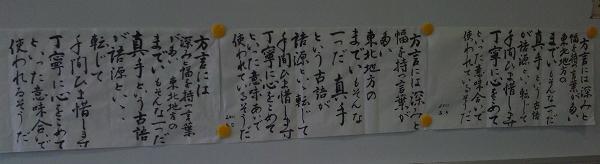 方言には深みと
幅を持つ言葉がある
東北地方の
までいもそんな一つだ
真手という古語
が語源といい転じて
手間ひま惜しまず
丁寧に心をこめて
といった意味合いで
使われるそうだ
方言には深みと
幅を持つ言葉が
ある
東北地方の
までいもそんな
一つだ 真手
という古語が
語源といい転じて
手間ひま惜しまず
丁寧に心をこめて
といった意味あいで
使われているそうだ
方言には
深みと幅を持つ言葉
がある 東北地方の
までいもそんな一つだ
真手という古語
が語源といい、
転じて
手間ひま惜しまず
丁寧に心をこめて
といった意味合いで
使われるそうだ